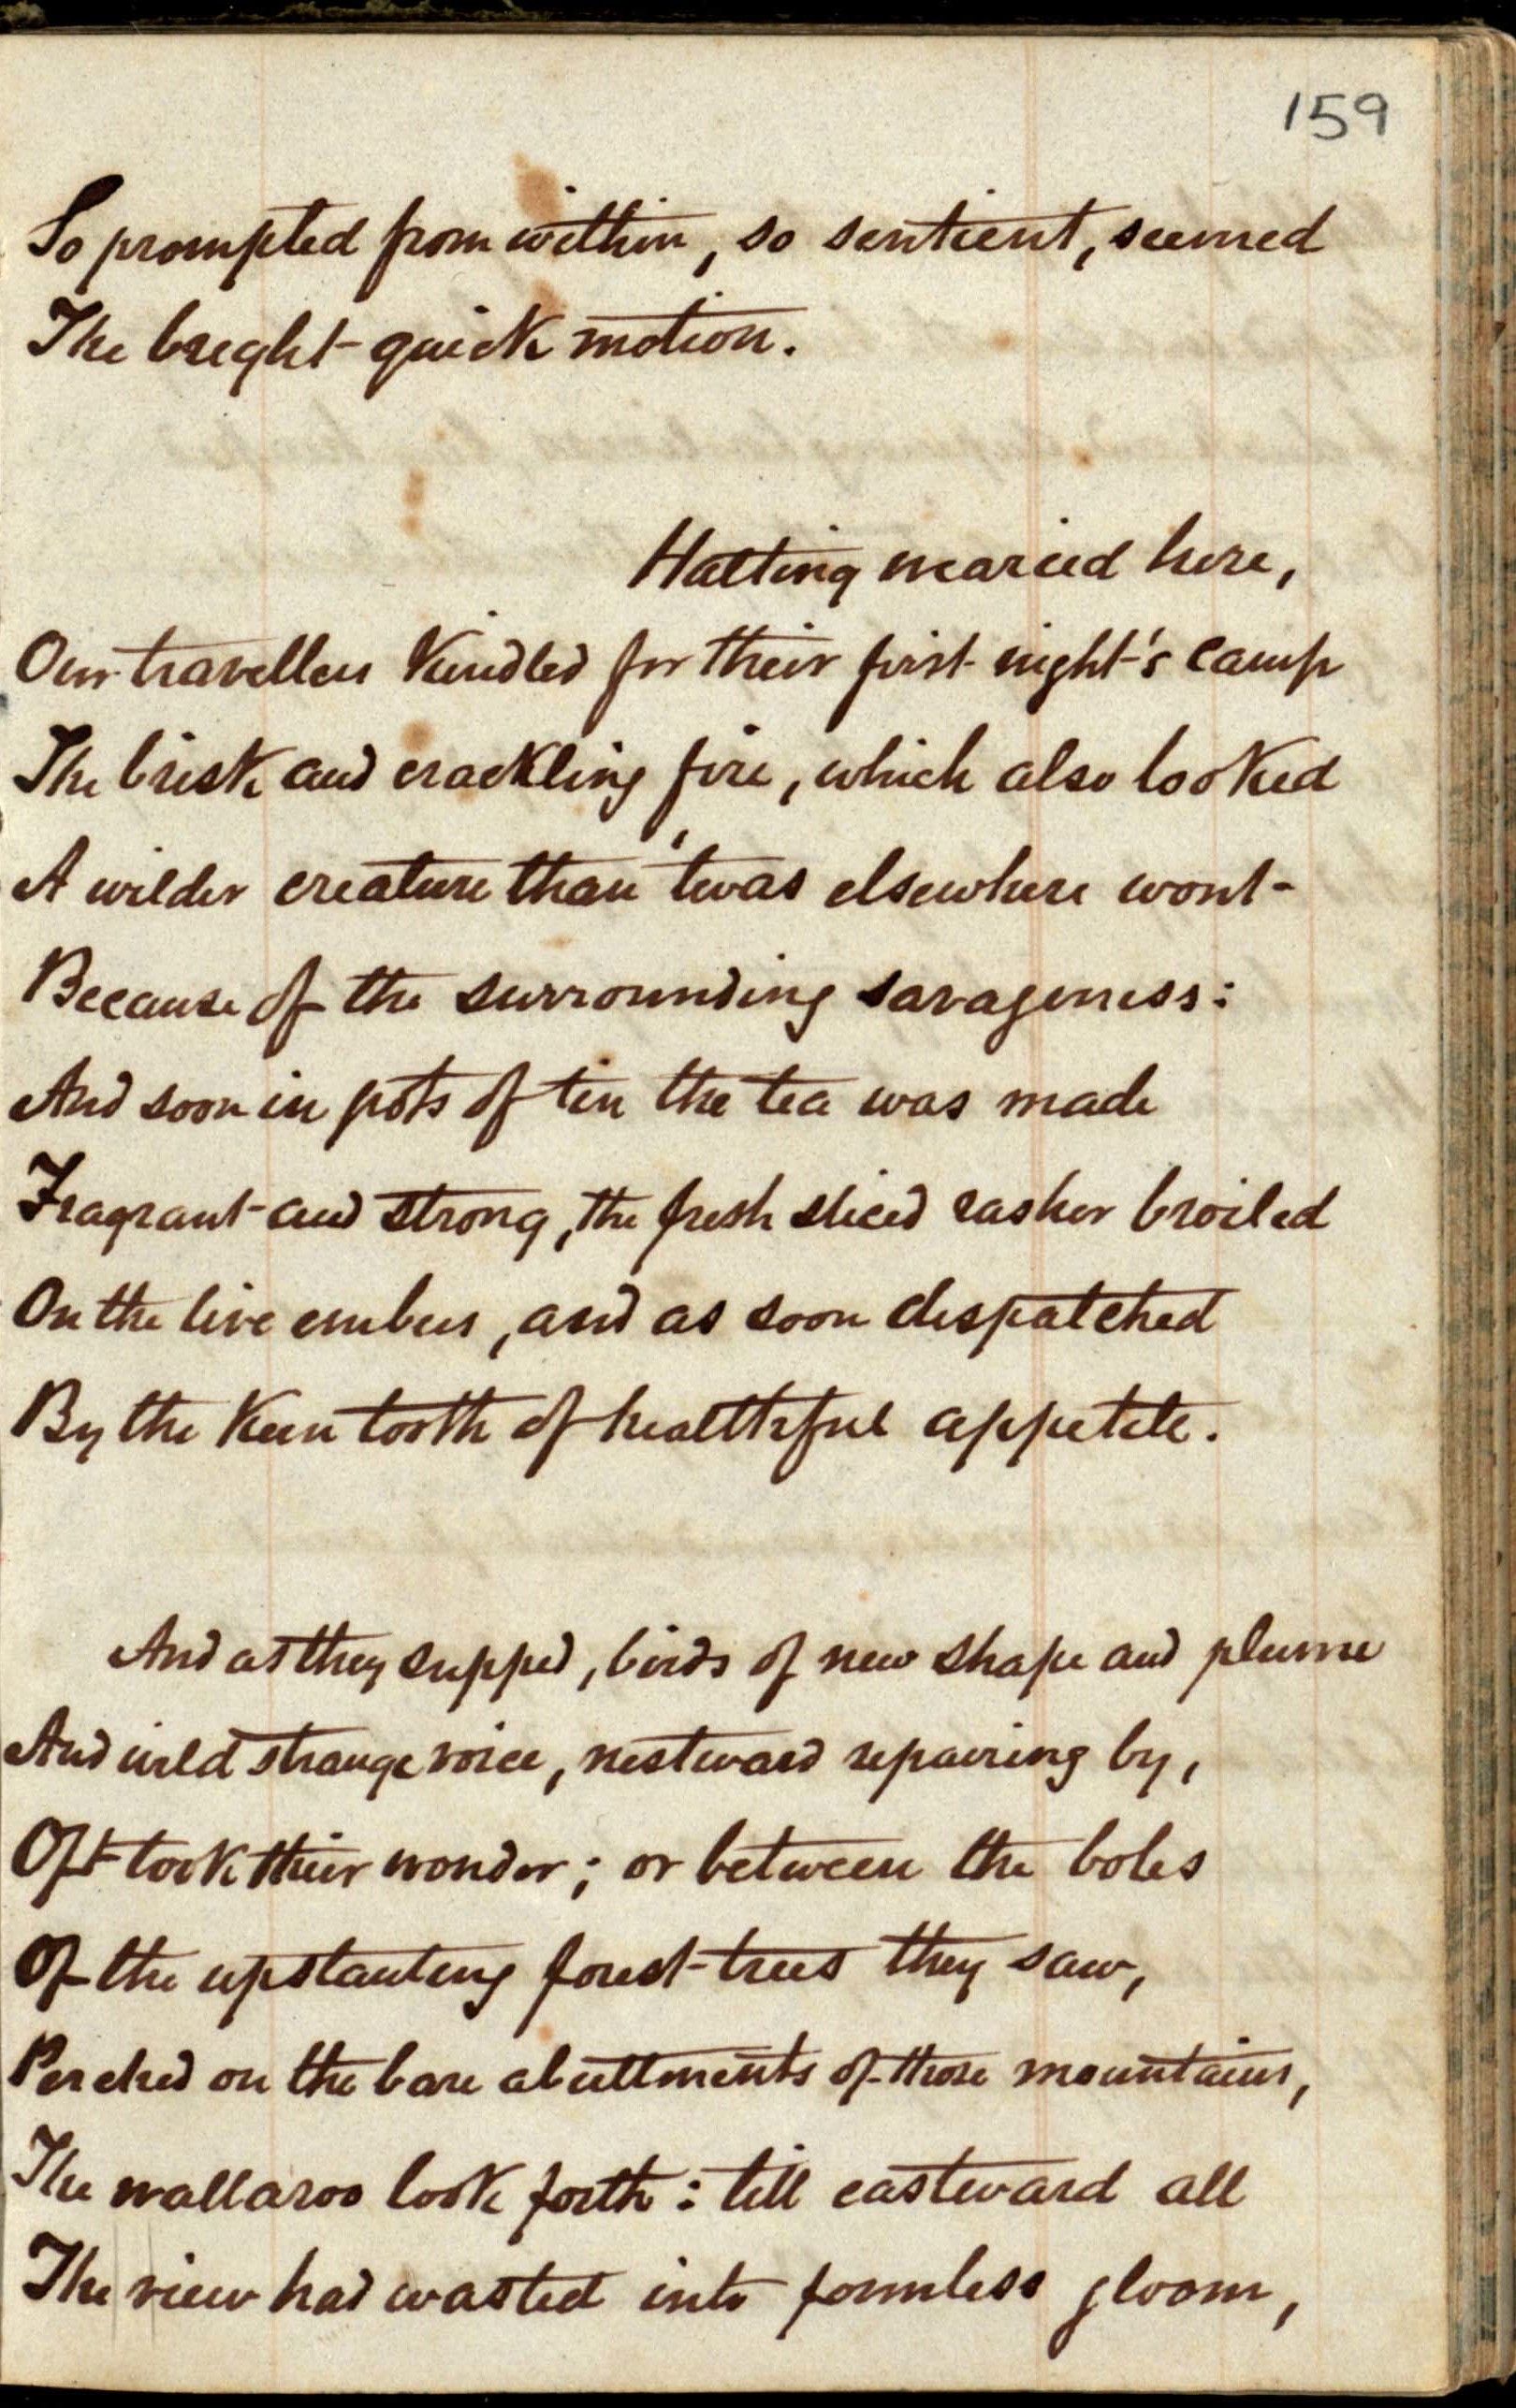 159
So prompted from within, so sentient, seemed
The bright quick motion.
Halting wearied here,
Our travellers kindled for their first night's camp
The brisk and crackling fire, which also looked
A wilder creature than 'twas elsewhere wont
Because of the surrounding savageness:
And soon in pots of tin the tea was made
Fragrant and strong, the fresh sliced rasher broiled
On the live embers, and as soon dispatched
By the keen tooth of healthful appetite.
And as they supped, birds of new shape and plume
And wild strange voice, nestward repairing by,
Oft took their wonder; or between the boles
Of the upslanting forest trees they saw,
Perched on the bare abuttments of those mountains,
The wallaroo look forth: till eastward all
The view had wasted into formless gloom,